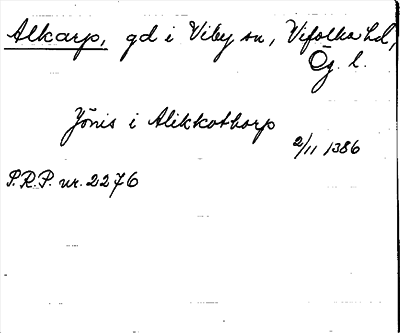 Alkarp, gd i Viby sn, Vifolka hd,
Ög. l.
Jönis i Alikkothorp
2/11 1386
P.R.P. nr. 2276